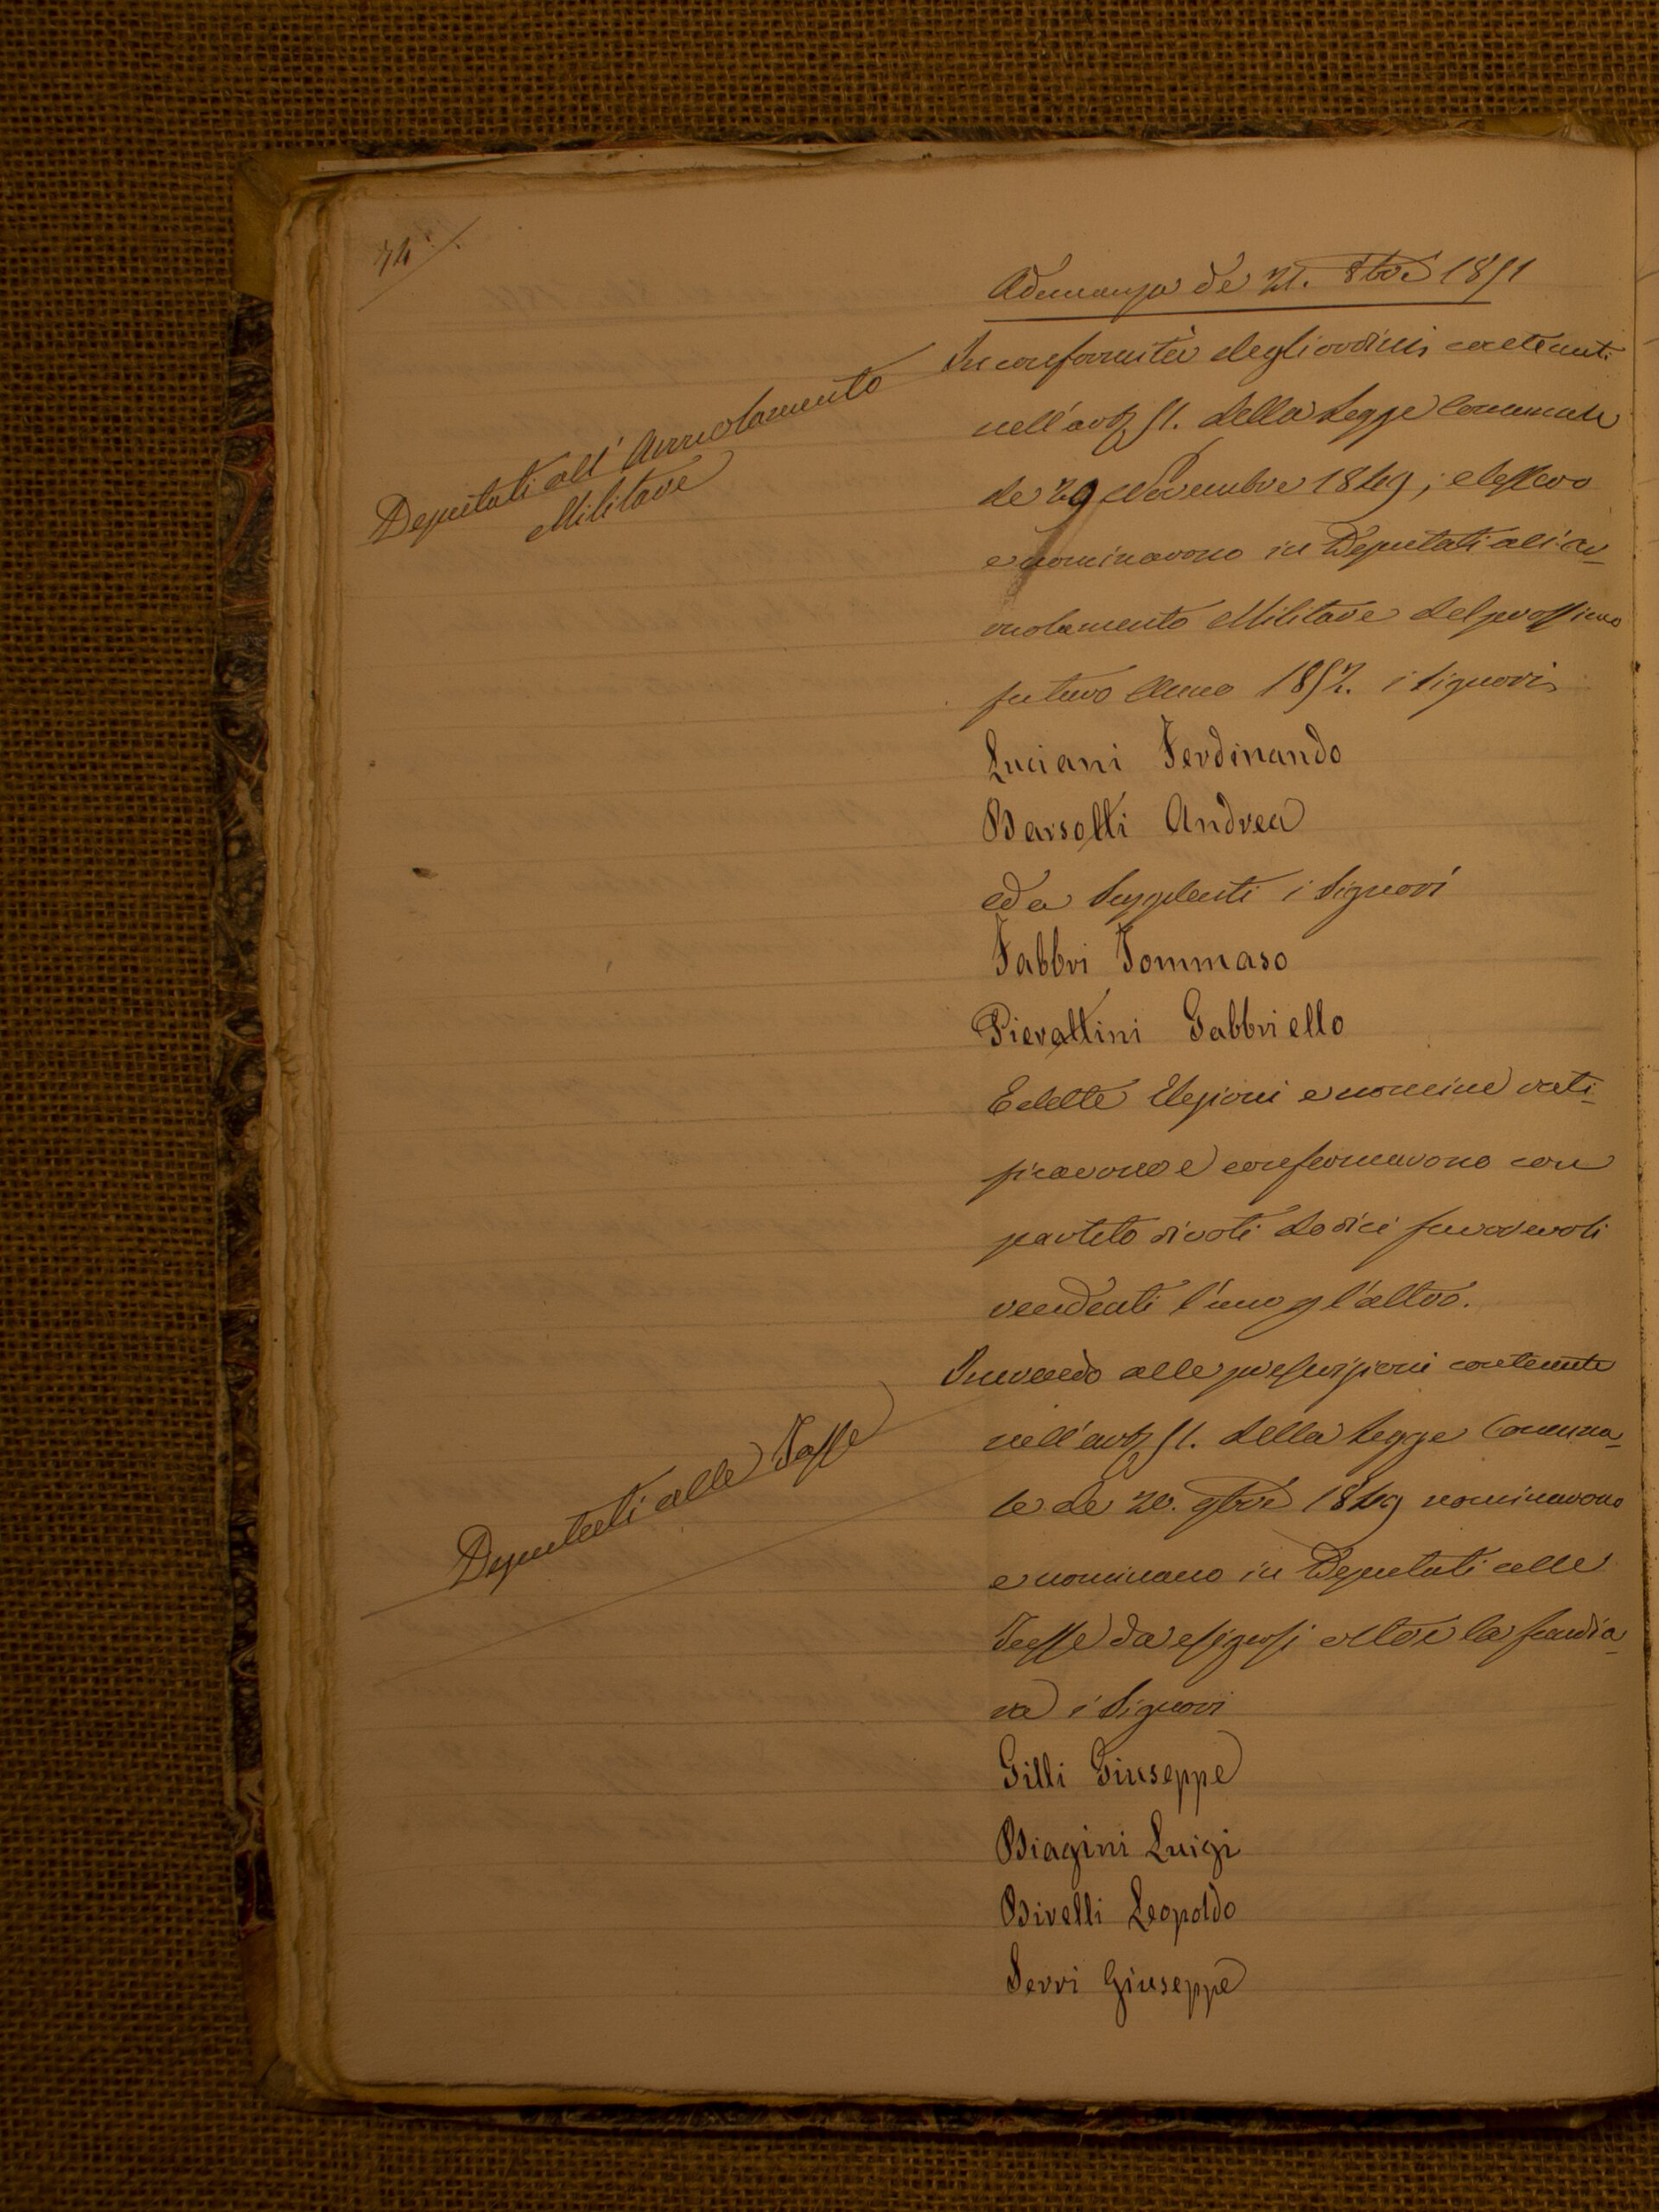 74
Adunanza de 21. 8bre 1851
Deputati all' Arruolamento
Militare
In conformità degli ordini contenuti
nell'art. 51. della Legge Comunale
de 20 Novembre 1849; elessero
e nominarono in Deputati all' ar-
ruolamento Militare del prossimo
futuro Anno 1852. i Signori
Luciani Ferdinando
Barsotti Andrea
ed a Supplenti i Signori
Fabbri Tommaso
Pierattini Gabbriello
E dette Elezioni e nomine rati-
ficarono e confermarono con
partito di voti dodici favorevoli
rendenti l'uno p l'altro.
Inerendo alle prescrizioni contenute
nell'art. 51. della Legge Comuna-
le de 20. 9bre 1849 nominarono
e nominano in Deputati alle
Deputati alle Tasse
Tasse da esigersi oltre la fondia-
ria i Signori
Gilli Giuseppe
Biagini Luigi
Birelli Leopoldo
Serri Giuseppe